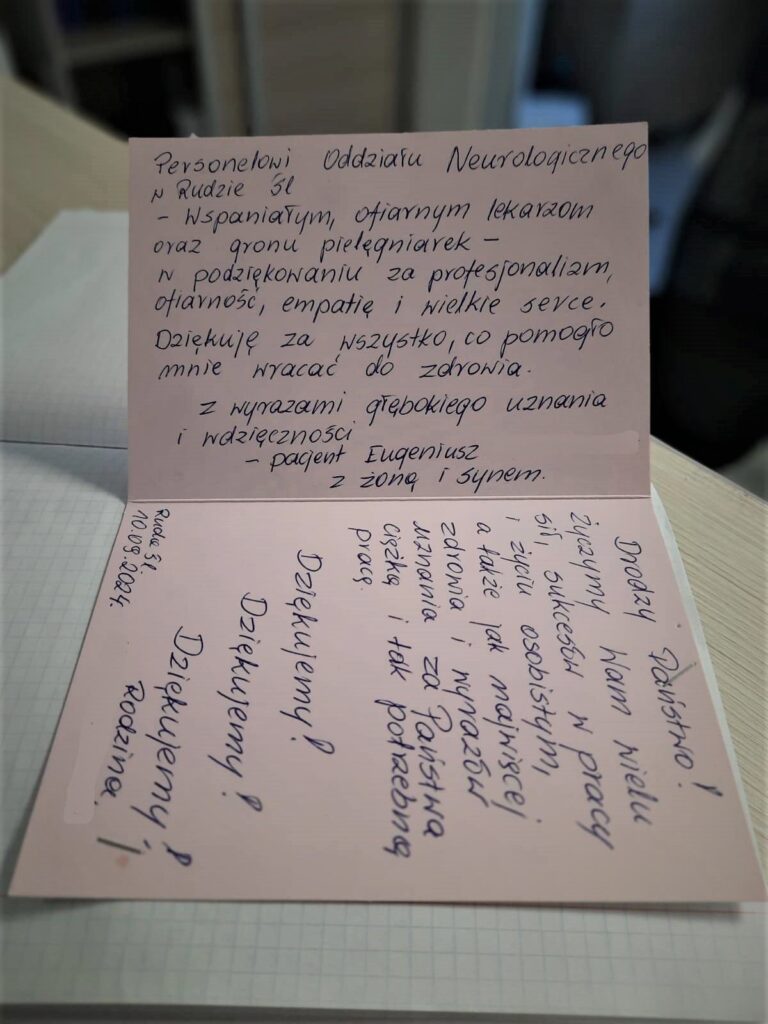 Personelowi Oddziału Neurologicznego
w Rudzie Śl
- Wspaniałym, ofiarnym lekarzom
oraz gronu pielęgniarek -
w podziękowaniu za profesjonalizm,
ofiarność, empatię i wielkie serce.
Dziękuję za wszystko, co pomogło
mnie wracać do zdrowia.
z wyrazami głębokiego uznania
i wdzięczności
- pacjent Eugeniusz
z żoną i synem.
Drodzy Państwo!
Życzymy Wam wielu
sił, sukcesów w pracy
i życiu osobistym,
a także jak najwięcej
zdrowia i wyrazów
uznania za Państwa
ciężką i tak potrzebną
pracę.
Dziękujemy!
Dziękujemy!
Dziękujemy!
Rodzina
Ruda Śl.
10.09.2024.